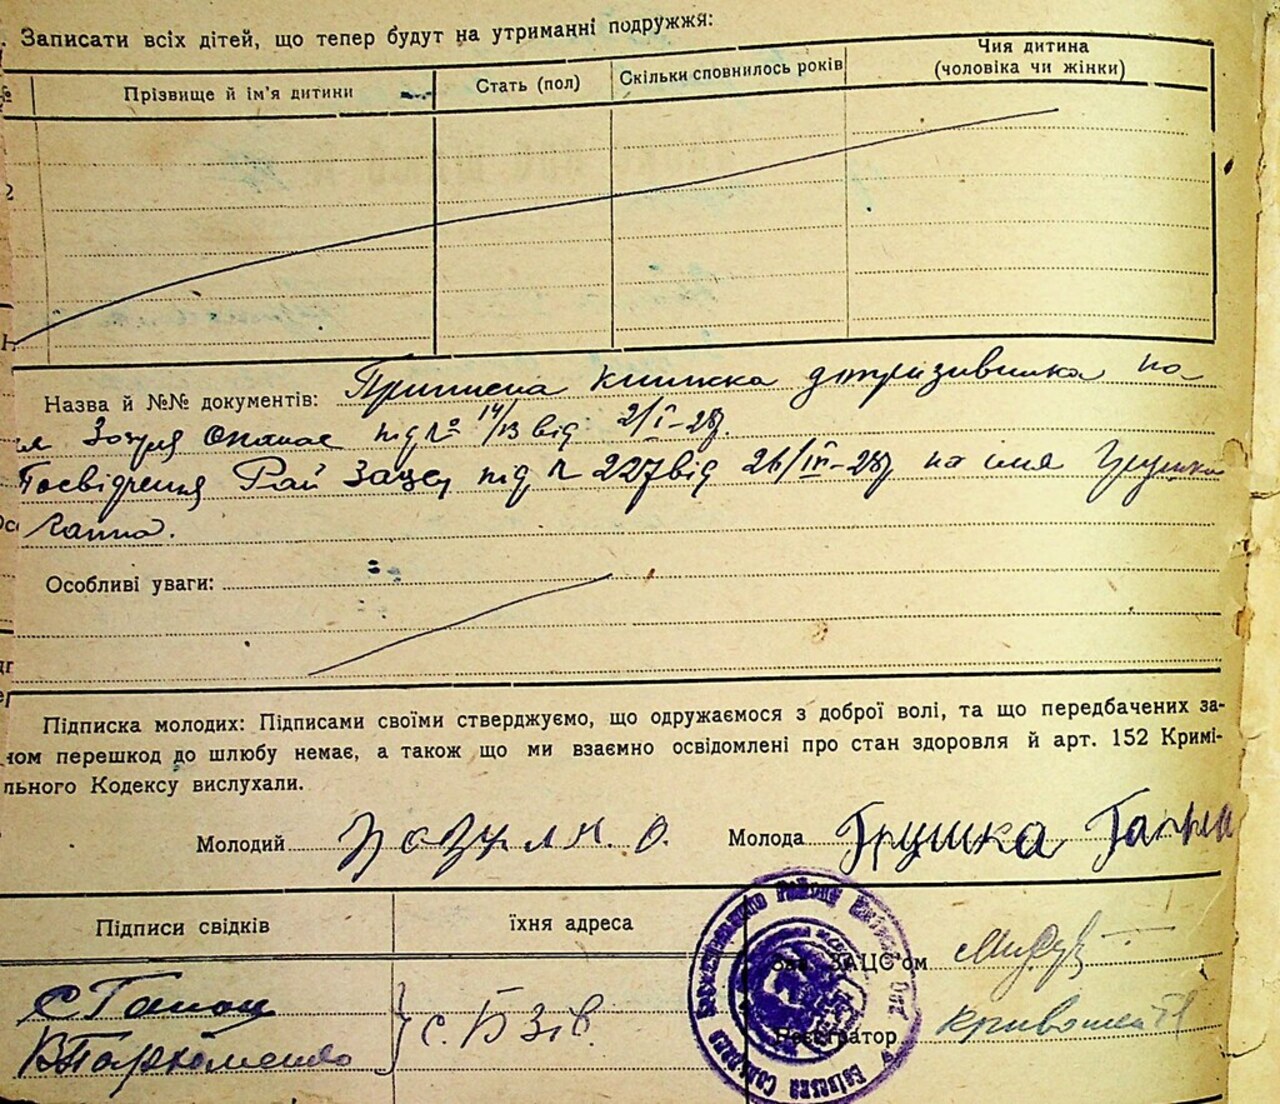 . Записати всіх дітей, що тепер будут на утриманні подружжя:
№ Прізвище й ім'я дитини Стать (пол) Скільки сповнилось років Чия дитина (чоловіка чи жінки)
2
Назва й №№ документів: Приписна книжка допризивника на
ім'я Зозуля Опанас під № 14/13 від 2/І-28р.
Посвідчення Рай Загсу під № 227 від 26/ІІІ-28р на імя Грушка
Ганна.
Особливі уваги:
Підписка молодих: Підписами своїми стверджуємо, що одружаємося з доброї волі, та що передбачених за-
ном перешкод до шлюбу немає, а також що ми взаємно освідомлені про стан здоровля й арт. 152 Кримі-
льного Кодексу вислухали.
Молодий Зозуля О. Молода Грушка Ганна
Підписи свідків їхня адреса
Зав. ЗАЦС'ом
С Гапон
В Пархоменко
с. Бзів.
Реєстратор Кривошей